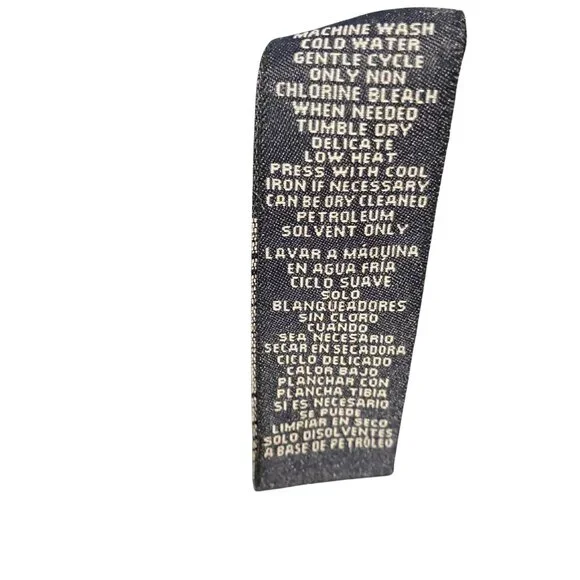 MACHINE WASH
COLD WATER
GENTLE CYCLE
ONLY NON
CHLORINE BLEACH
WHEN NEEDED
TUMBLE DRY
DELICATE
LOW HEAT
PRESS WITH COOL
IRON IF NECESSARY
CAN BE DRY CLEANED
PETROLEUM
SOLVENT ONLY
LAVAR A MÁQUINA
EN AGUA FRÍA
CICLO SUAVE
SOLO
BLANQUEADORES
SIN CLORO
CUANDO
SEA NECESARIO
SECAR EN SECADORA
CICLO DELICADO
CALOR BAJO
PLANCHAR CON
PLANCHA TIBIA
SI ES NECESARIO
SE PUEDE
LIMPIAR EN SECO
SOLO DISOLVENTES
A BASE DE PETRÓLEO